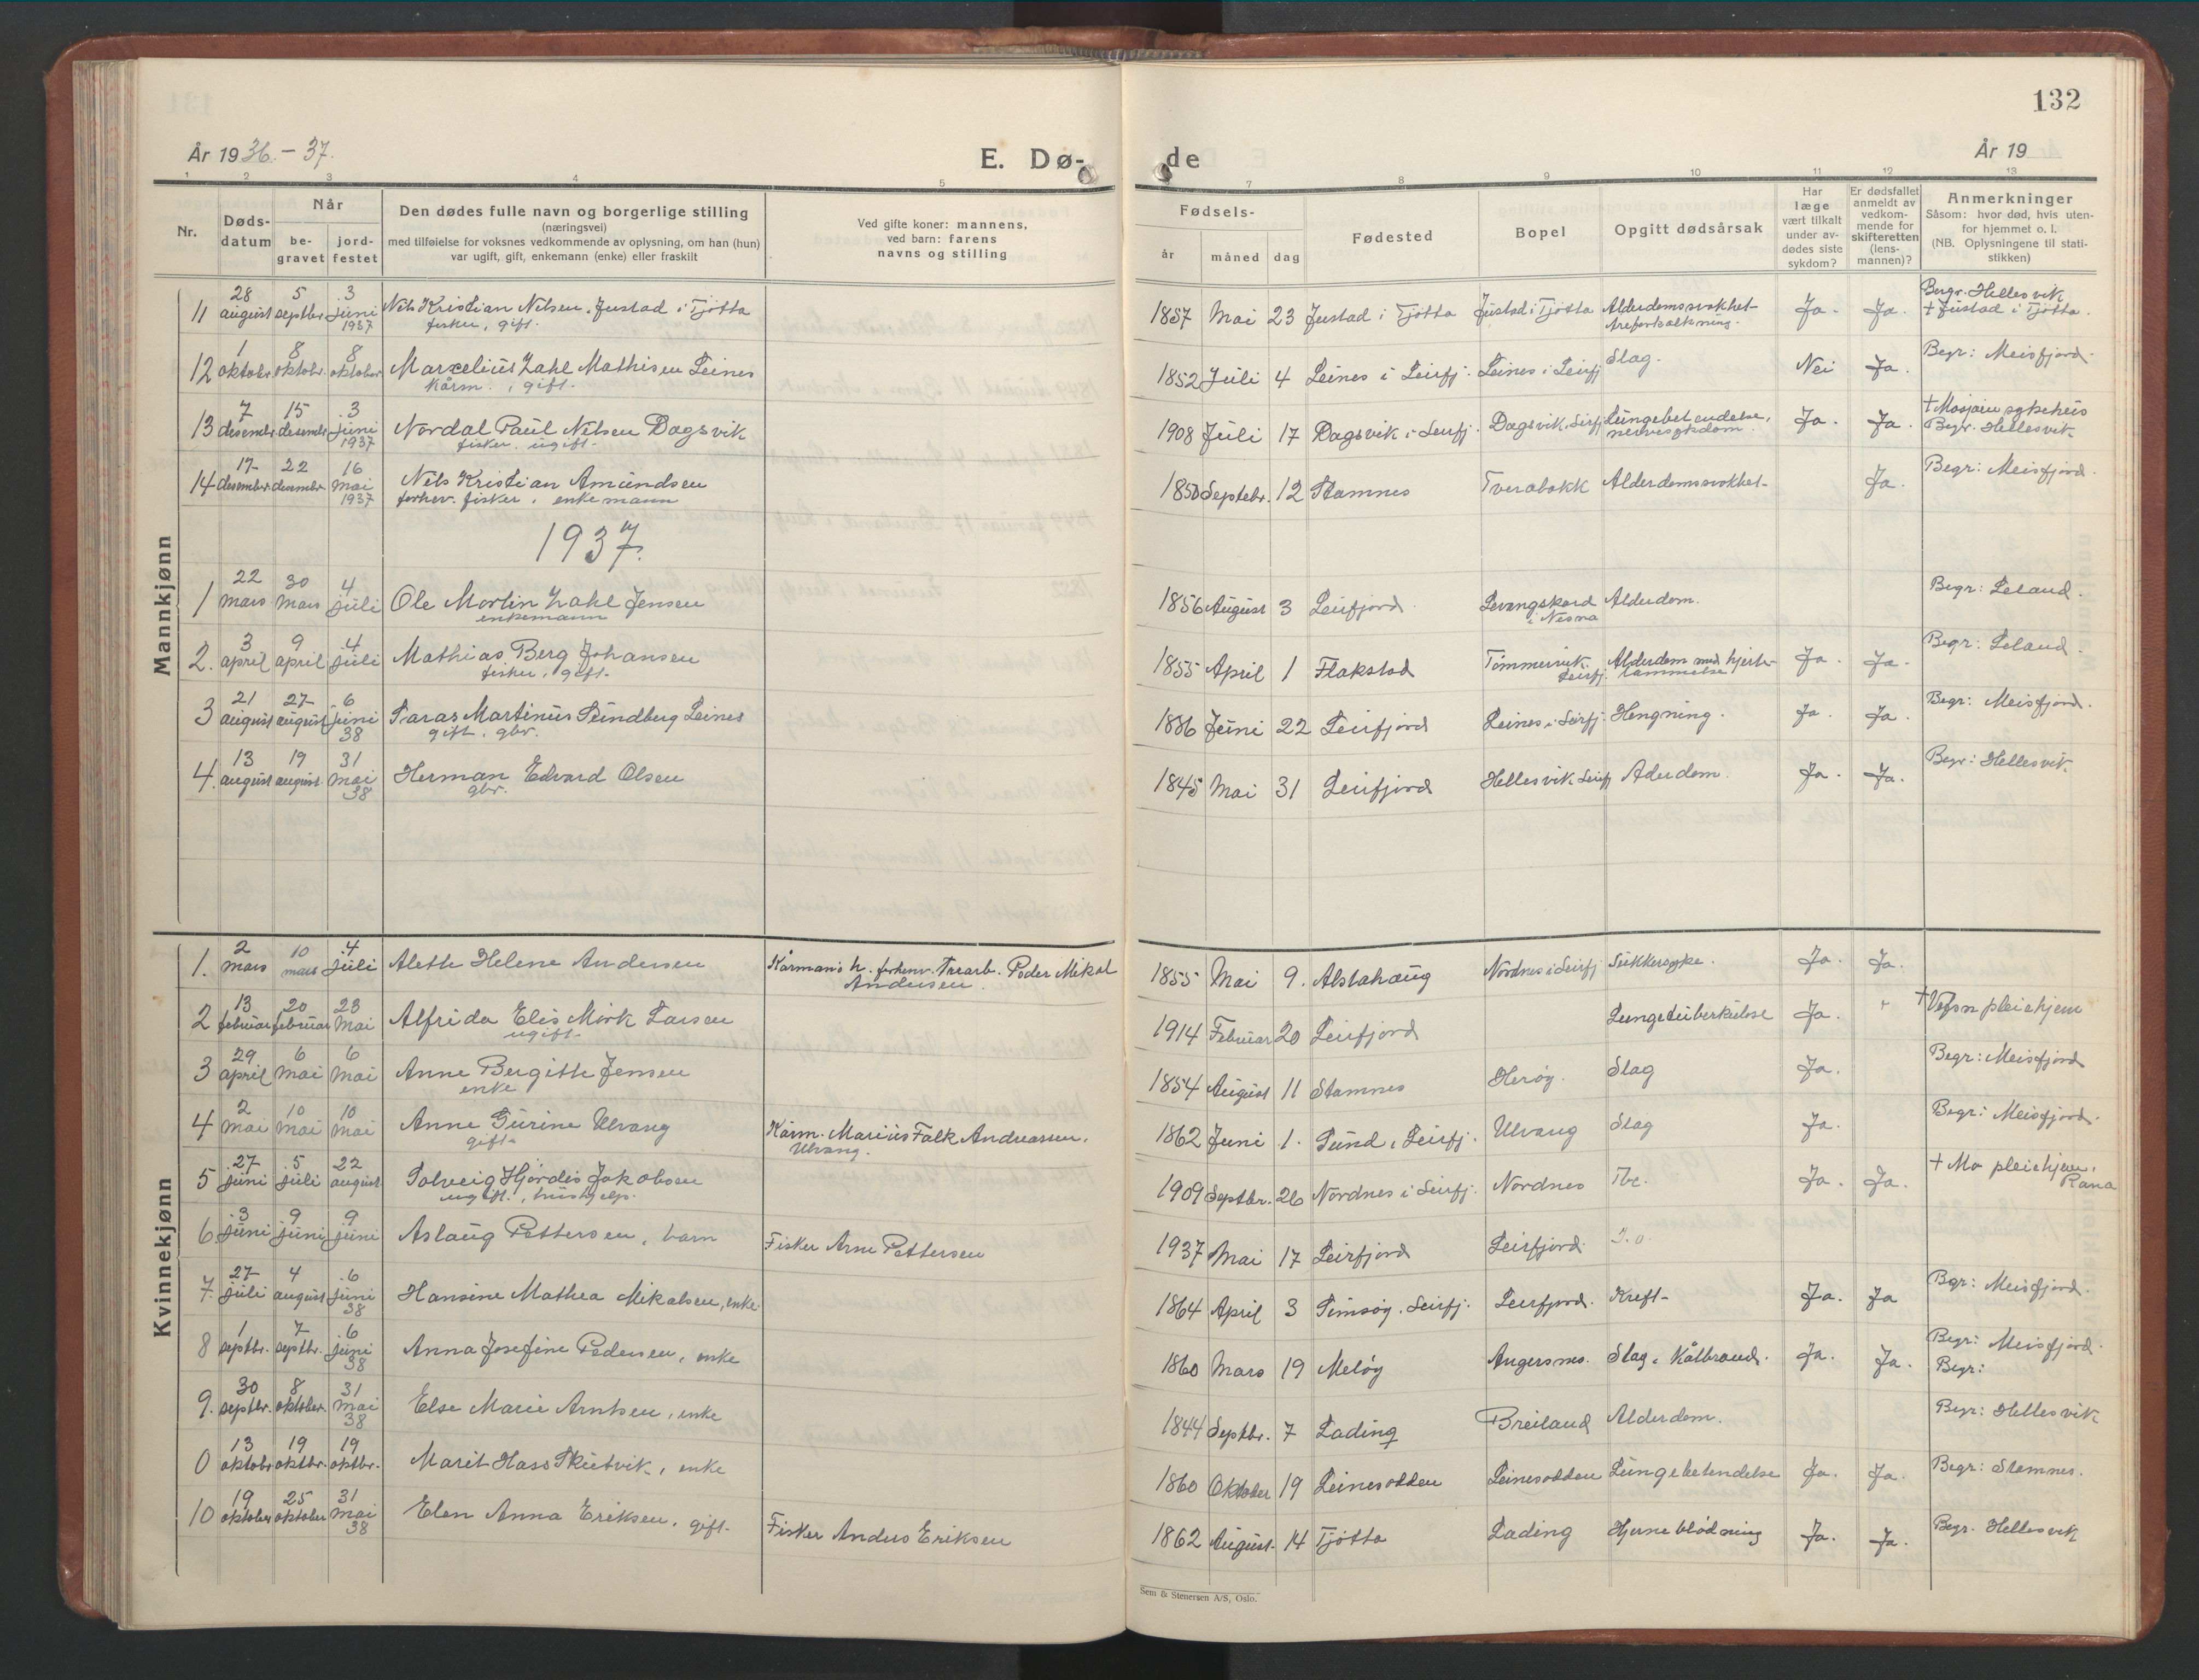 132
År 1936.-37.
E. Dø-
de
År 19
1 2 3 4 5 7 8 9 10 11 12 13
Nr.
Døds-
datum
Når
be-
gravet
jord-
festet
Den dødes fulle navn og borgerlige stilling
(næringsvei)
med tilføielse for voksnes vedkommende av oplysning, om han (hun)
var ugift, gift, enkemann (enke) eller fraskilt
Ved gifte koner: mannens,
ved barn: farens
navns og stilling
Fødsels-
år måned dag
Fødested
Bopel
Opgitt dødsårsak
Har
læge
vært tilkalt
under av-
dødes siste
sykdom?
Er dødsfallet
anmeldt av
vedkom-
mende for
skifteretten
(lens-
mannen)?
Anmerkninger
Såsom: hvor død, hvis uten-
for hjemmet o. l.
(NB. Oplysningene til stati-
stikken)
Mannkjønn
28 5 3 Begr. Hellesvik
11 august septbr. juni Nils Kristian Nilsen, Justad i Tjötta 1857 Mai 23 Justad i Tjötta Justad i Tjötta Alderdomssvakhet- Ja. Ja. + Justad i Tjötta.
1937 fisker, gift. Areforkalkning.
1 8 8
12 oktobr. oktobr. oktober Marcelius Zahl Mathisen Leines 1852 Juli 4 Leines i Leirfj. Leines i Leirfj Slag. Nei Ja. Begr: Meisfjord.
Kårm., gift.
7 15 3 + Mosjøen sykehus
13 desembr. desembr. juni Nordal Paul Nilsen Dagsvik 1908 Juli 17 Dagsvik i Leirfj. Dagsvik, Leirfj Lungebetendelse, Ja. Ja. Begr. Hellesvik
1937 fisker. ugift. nervesykdom.
17 22 16
14 desember desembr. mai Nils Kristian Amundsen 1850 Septebr. 12 Stamnes Tveråbakk Alderdomssvakhet- Ja. Begr: Meisfjord
1937 forhev. fisker, enkemann
1937.
22 30 4
1 mars mars juli Ole Mortin Zahl Jensen 1856 August 3 Leirfjord. Levangskard Alderdom. Begr: Leland.
enkemann i Nesna
3 9 4
2. april april juli Mathias Berg Johansen 1855 April 1 Flakstad Tömmervik. Alderdom med hjerte- Ja. Ja. Begr: Leland.
fisker, gift. Leirfj. lammelse
21 27 6
3 august august juni Laras Martinus Sundberg Leines 1886 Juni 22 Leirfjord Leines i Leirfj. Hengning. Ja. Ja. Begr: Meisfjord.
38 gift. gbr.
13 19 31
4. august august mai Herman Edvard Olsen 1845 Mai 31 Leirfjord Hellesvik Leirfj Aderdom. Ja. Ja. Begr: Hellesvik.
38 gbr.
Kvinnekjønn
2 10 4
1. mars mars juli Aleth Helene Andersen Kårmans h. forhenv. Trearb. Peder Mikal 1855 Mai 9. Alstahaug Nordnes i Leirfj Sukkersyke. Ja. Ja.
Andersen.
13 20 23
2 februar februar Mai Alfrida Elis Mörk Larsen 1914 Februar 20 Leirfjord Lungetuberkulose Ja. " + Vefsn pleiehjem
ugift-
29 6 6
3 april mai mai Anne Bergitte Jensen 1854 August 11 Stamnes Heröy. Slag Ja. Begr: Meisfjord
enke
2 10 10
4 mai mai mai Anne Gurine Ulvang Kårm. Marius Falk Andreassen, 1862 Juni 1. Sund i Leirfj. Ulvang Slag Ja. Begr: Meisfjord.
gift- Ulvang.
27 5 22
5 juni juli august Solveig Hjördis Jakobsen 1909 Septbr. 26 Nordnes i Leirfj. Nordnes Tbc. Ja. Ja. + Mo pleiehjem,
ugift., hushjelp. Rana
3 9 9
6 juni juni juni Aslaug Pettersen, barn Fisker Arne Pettersen 1937 Mai 17 Leirfjord Leirfjord.
27 4 6
7. juli august juni Hansine Mathea Mikalsen, enke. 1864 April 3 Simsøy. Leirfj. Leirfjord. Kreft- Ja. Ja Begr: Meisfjord.
38
1 7 6
8 septbr. septbr. juni Anna Josefine Pedersen, enke 1860 Mars 19 Melöy Angersnes. Slag, Kålbrand. Ja. Ja. Begr: Meisfjord.
38 Begr:
30 8 31
9. septbr. oktober. mai Else Marie Arntsen, enke 1844 Septbr. 7 Lading Breiland Alderdom. Begr: Hellesvik
38
13 19 19
0 oktobr oktbr. oktbr. Marit Hass Skutvik, enke 1860 Oktober 19 Leinesodden Leinesodden Lungebetendelse Ja. Ja. Begr: Stamnes.
19 25 31
10 oktober oktober mai Elen Anna Eriksen, gift- Fisker Anders Eriksen 1862 August. 14 Tjötta Lading Hjerneblödning Ja. Ja. Begr. Hellesvik
38
Sem & Stenersen A/S, Oslo.